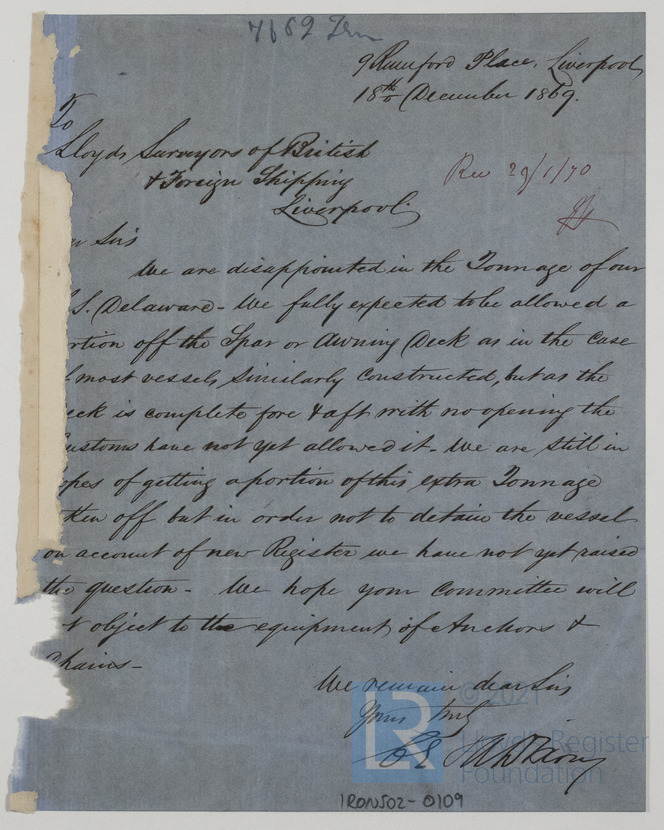 7662 Irn
9 Rumford Place, Liverpool
18th December 1869.
To
Lloyds Surveyors of British
& Foreign Shipping
Liverpool
Rec 29/1/70
Sirs
We are disappointed in the Tonnage of our
S. Delaware - We fully expected to be allowed a
rtion off the Spar or Awning Deck as in the case
f most vessels similarly constructed, but as the
eck is complete fore & aft with no opening the
ustoms have not yet allowed it - We are still in
opes of getting a portion of this extra Tonnage
ken off but in order not to detain the vessel
on account of new Register we have not yet raised
the question - We hope your Committee will
t object to the equipment of Anchors &
Chains -
We remain dear Sirs
Yours truly
© 2021
Lloyd's Register
Foundation
LR
IRON502-0109